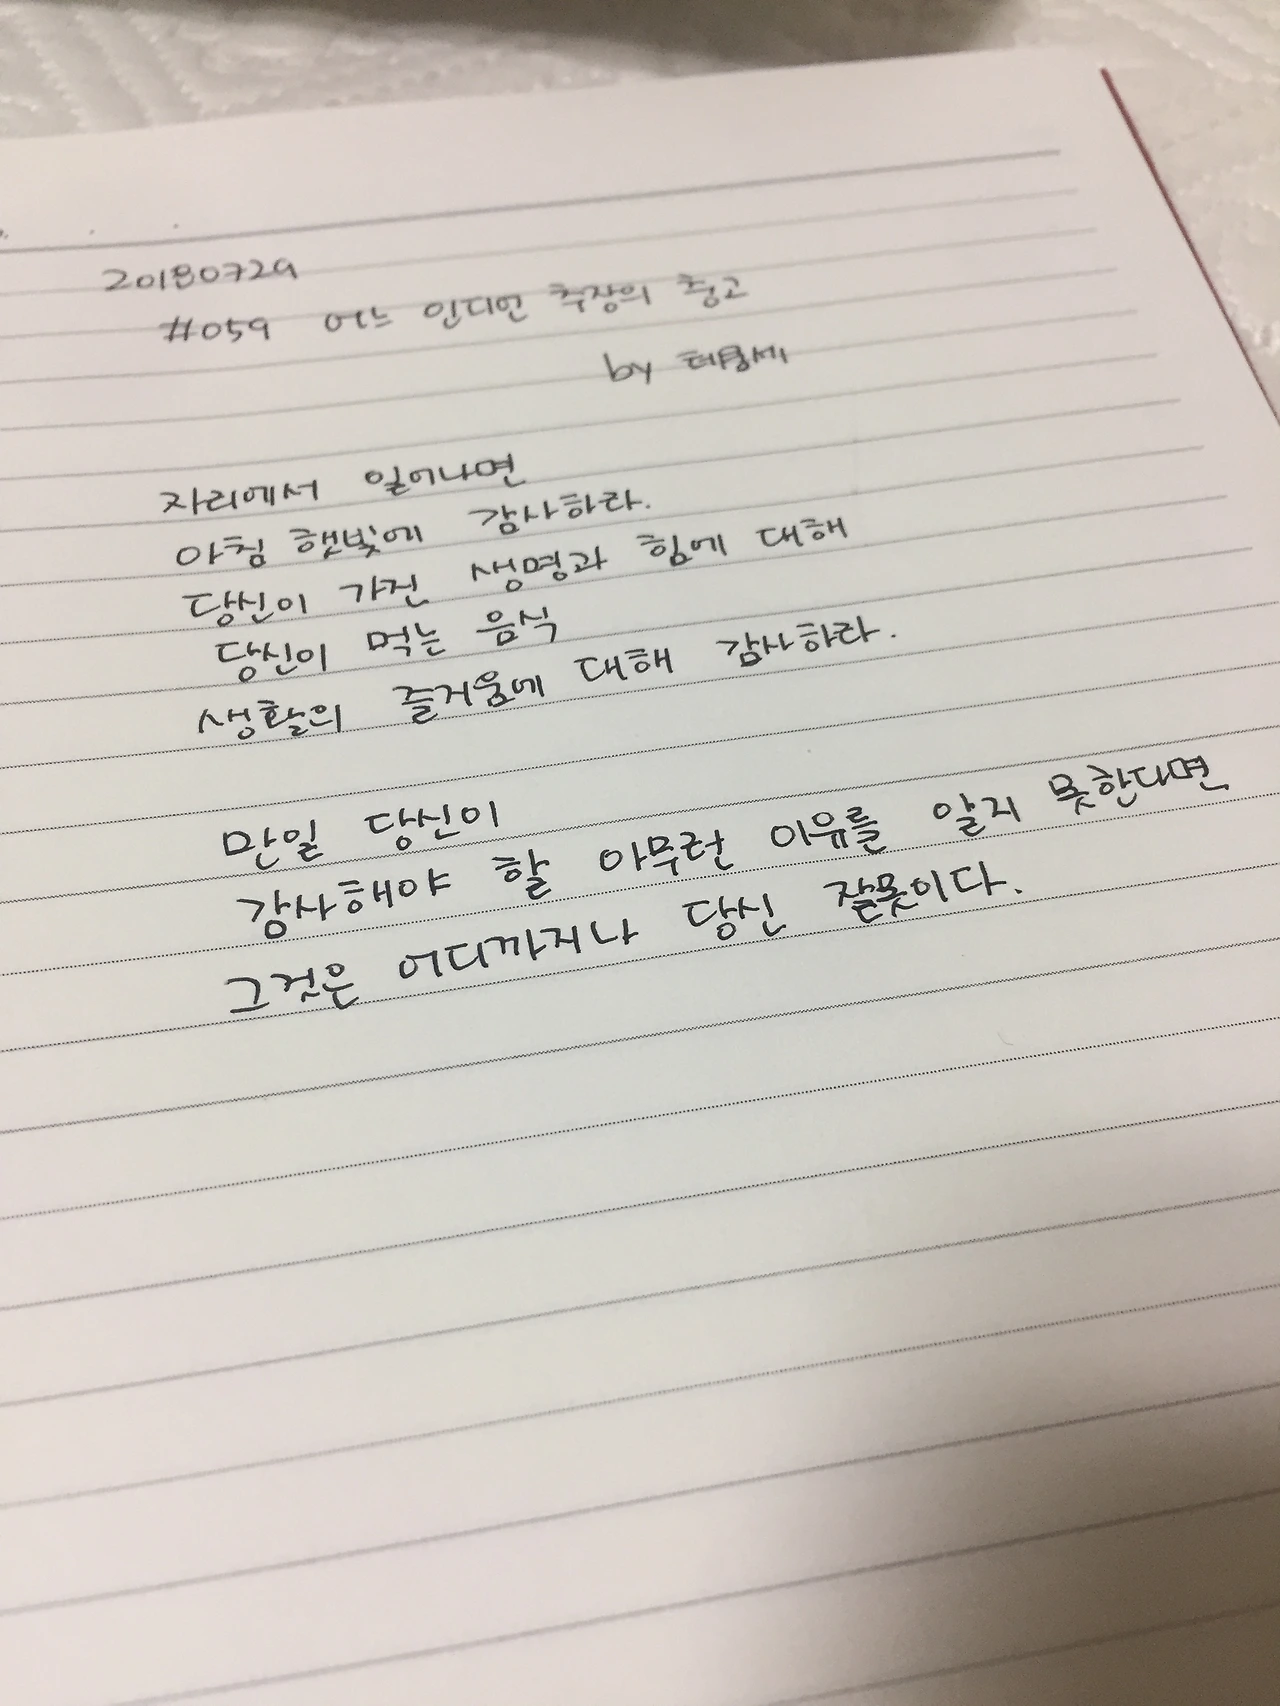 20180729
#059 어느 인디언 추장의 충고
by 테쿰세
자리에서 일어나면
아침 햇빛에 감사하라.
당신이 가진 생명과 힘에 대해
당신이 먹는 음식
생활의 즐거움에 대해 감사하라.
만일 당신이
감사해야 할 아무런 이유를 알지 못한다면
그것은 어디까지나 당신 잘못이다.